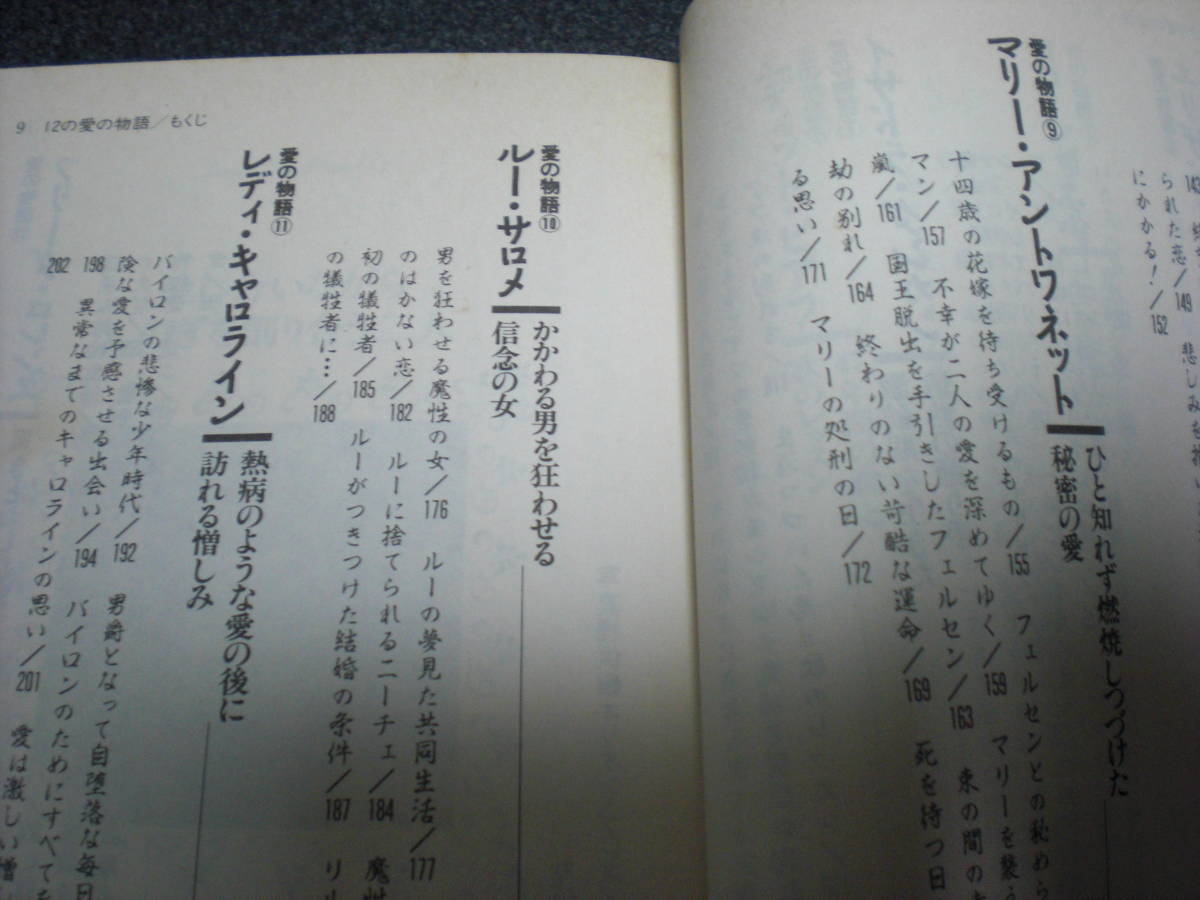 られた恋/149 悲しみを抱い
にかかる!/152
愛の物語⑨
マリー・アントワネット
ひと知れず燃焼しつづけた
秘密の愛
十四歳の花嫁を待ち受けるもの/155 フェルセンとの秘めら
マン/157 不幸が二人の愛を深めてゆく/159 マリーを襲う
嵐/161 国王脱出を手引きしたフェルセン/163 束の間の
劫の別れ/164 終わりのない苛酷な運命/169 死を待つ日
る思い/171 マリーの処刑の日/172
愛の物語⑩
ルー・サロメ
かかわる男を狂わせる
信念の女
男を狂わせる魔性の女/176 ルーの夢見た共同生活/177
のはかない恋/182 ルーに捨てられるニーチェ/184 魔性
初の犠牲者/185 ルーがつきつけた結婚の条件/187 リル
の犠牲者に…/188
愛の物語⑪
レディ・キャロライン
熱病のような愛の後に
訪れる憎しみ
バイロンの悲惨な少年時代/192 男爵となって自堕落な毎日
険な愛を予感させる出会い/194 バイロンのためにすべてを
198 異常なまでのキャロラインの思い/201 愛は激しい憎
202
9 12の愛の物語/もくじ